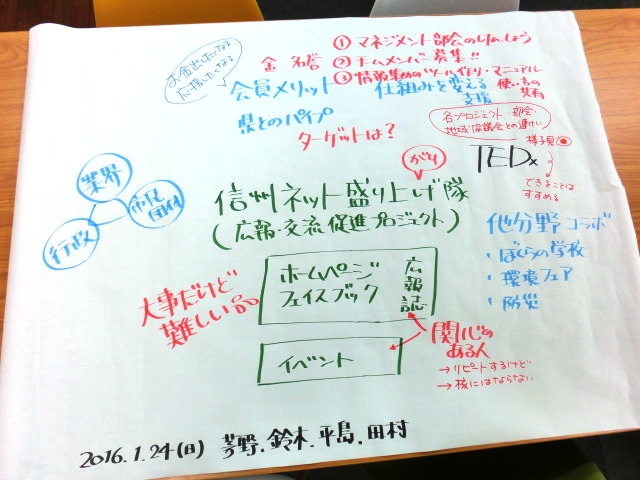 お金出したくなる
応援したくなる
金 名誉
① マネジメント部会のしんしょう
② チームメンバー募集!!
③ 情報集めのツール作り・マニュアル
使い方の
共有
会員メリット
仕組みを変える
支援
県とのパイプ
ターゲットは?
各プロジェクト 部会
地域協議会との連けい
様子見
TEDx
できることは
すすめる
業界
市民
団体
行政
がり
信州ネット盛り上げ隊
(広報・交流促進プロジェクト)
他分野コラボ
・ぼくらの学校
・環境フェア
・防災
大事だけど
難しい品
ホームページ
フェイスブック
広報誌
イベント
関心の
ある人
→リピートするけど
→核にはならない
2016.1.24(日) 茅野.鈴木.平島.田村